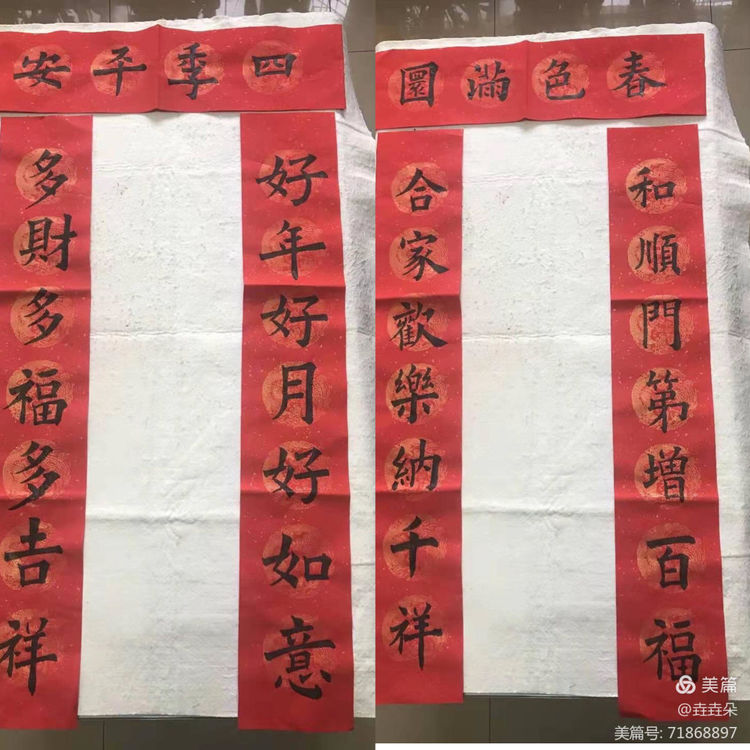 四季平安
好年好月好如意
多財多福多吉祥
春色滿園
和順門第增百福
合家歡樂納千祥
美篇
@垚垚朵
美篇号: 71868897